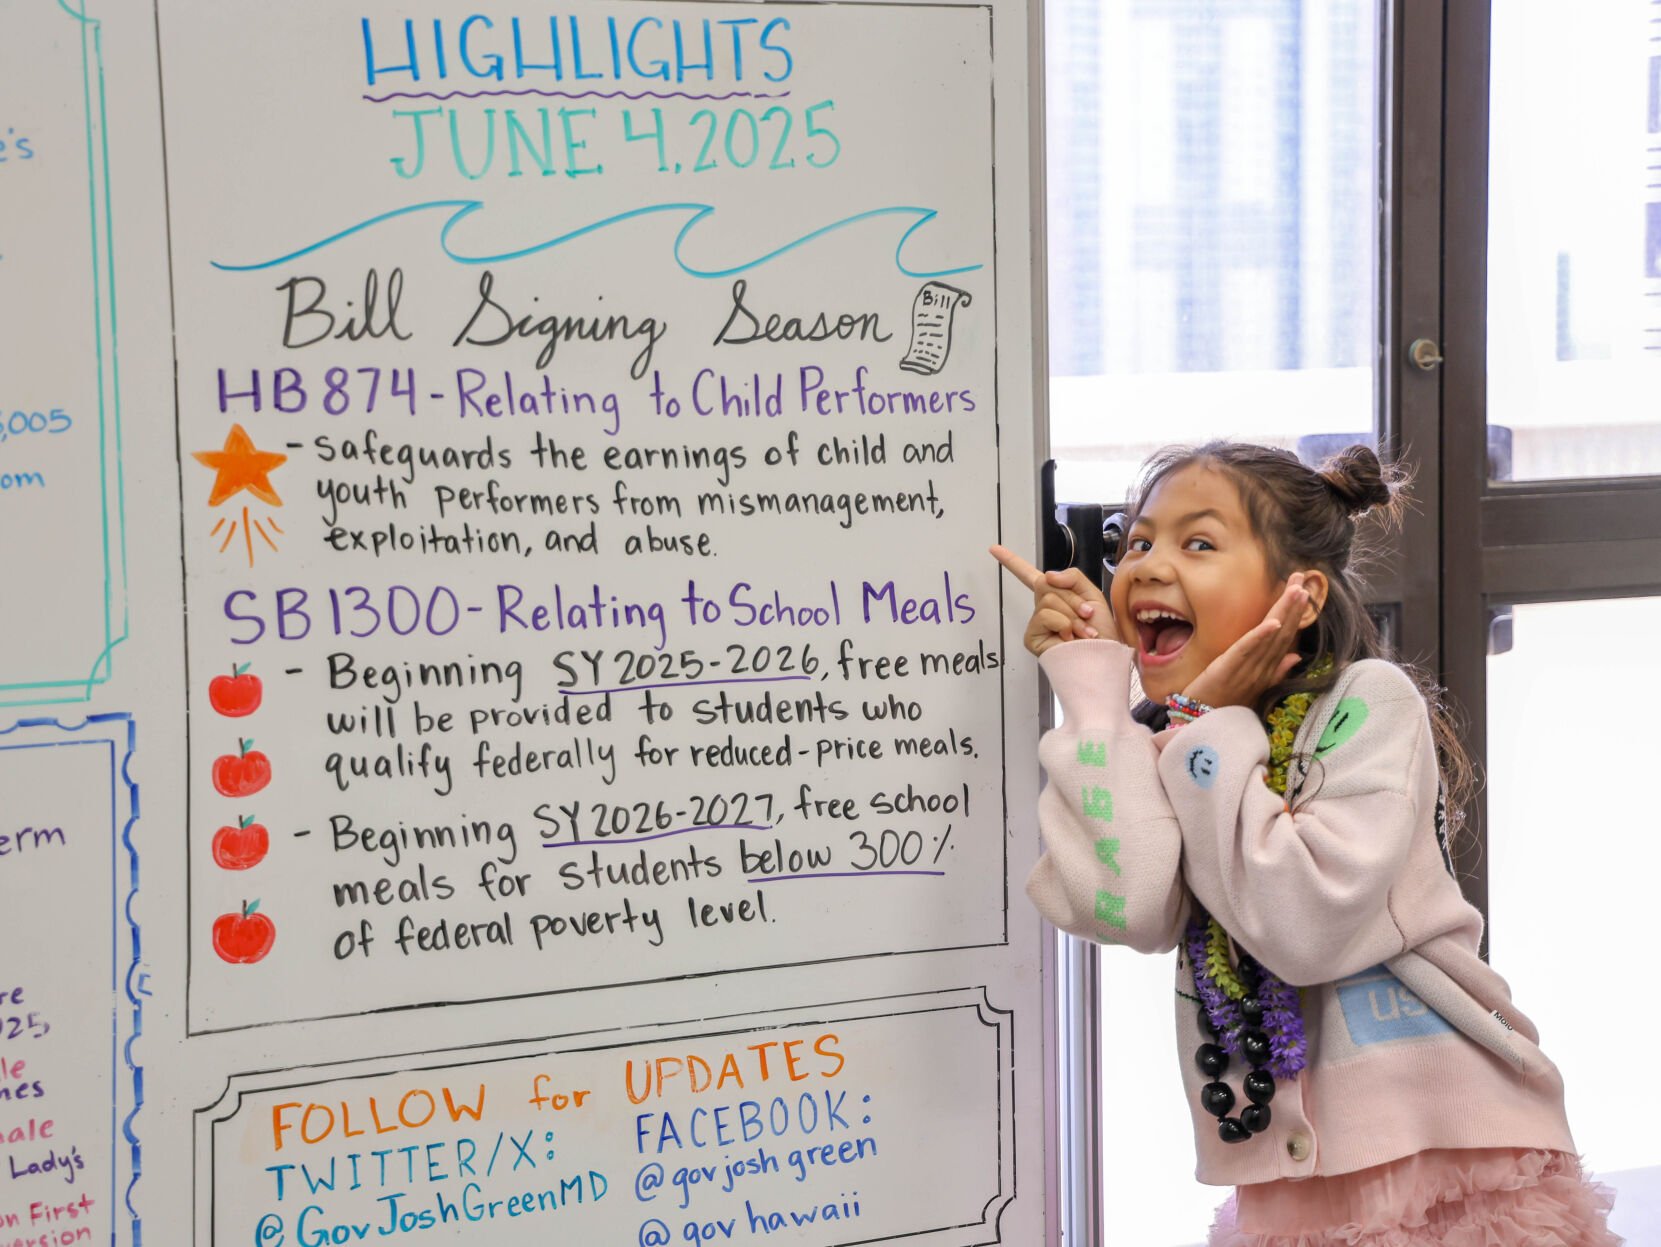 HIGHLIGHTS
JUNE 4, 2025
Bill Signing Season
Bill
HB 874 - Relating to Child Performers
- safeguards the earnings of child and
youth performers from mismanagement,
exploitation, and abuse.
SB 1300 - Relating to School Meals
- Beginning SY 2025-2026, free meals
will be provided to students who
qualify federally for reduced-price meals.
- Beginning SY 2026-2027, free school
meals for students below 300%
of federal poverty level.
FOLLOW for UPDATES
TWITTER/X:
@GovJoshGreenMD
FACEBOOK:
@govjoshgreen
@govhawaii
e's
,005
om
erm
re
025
le
nes
ale
Lady's
on First
version
Molo